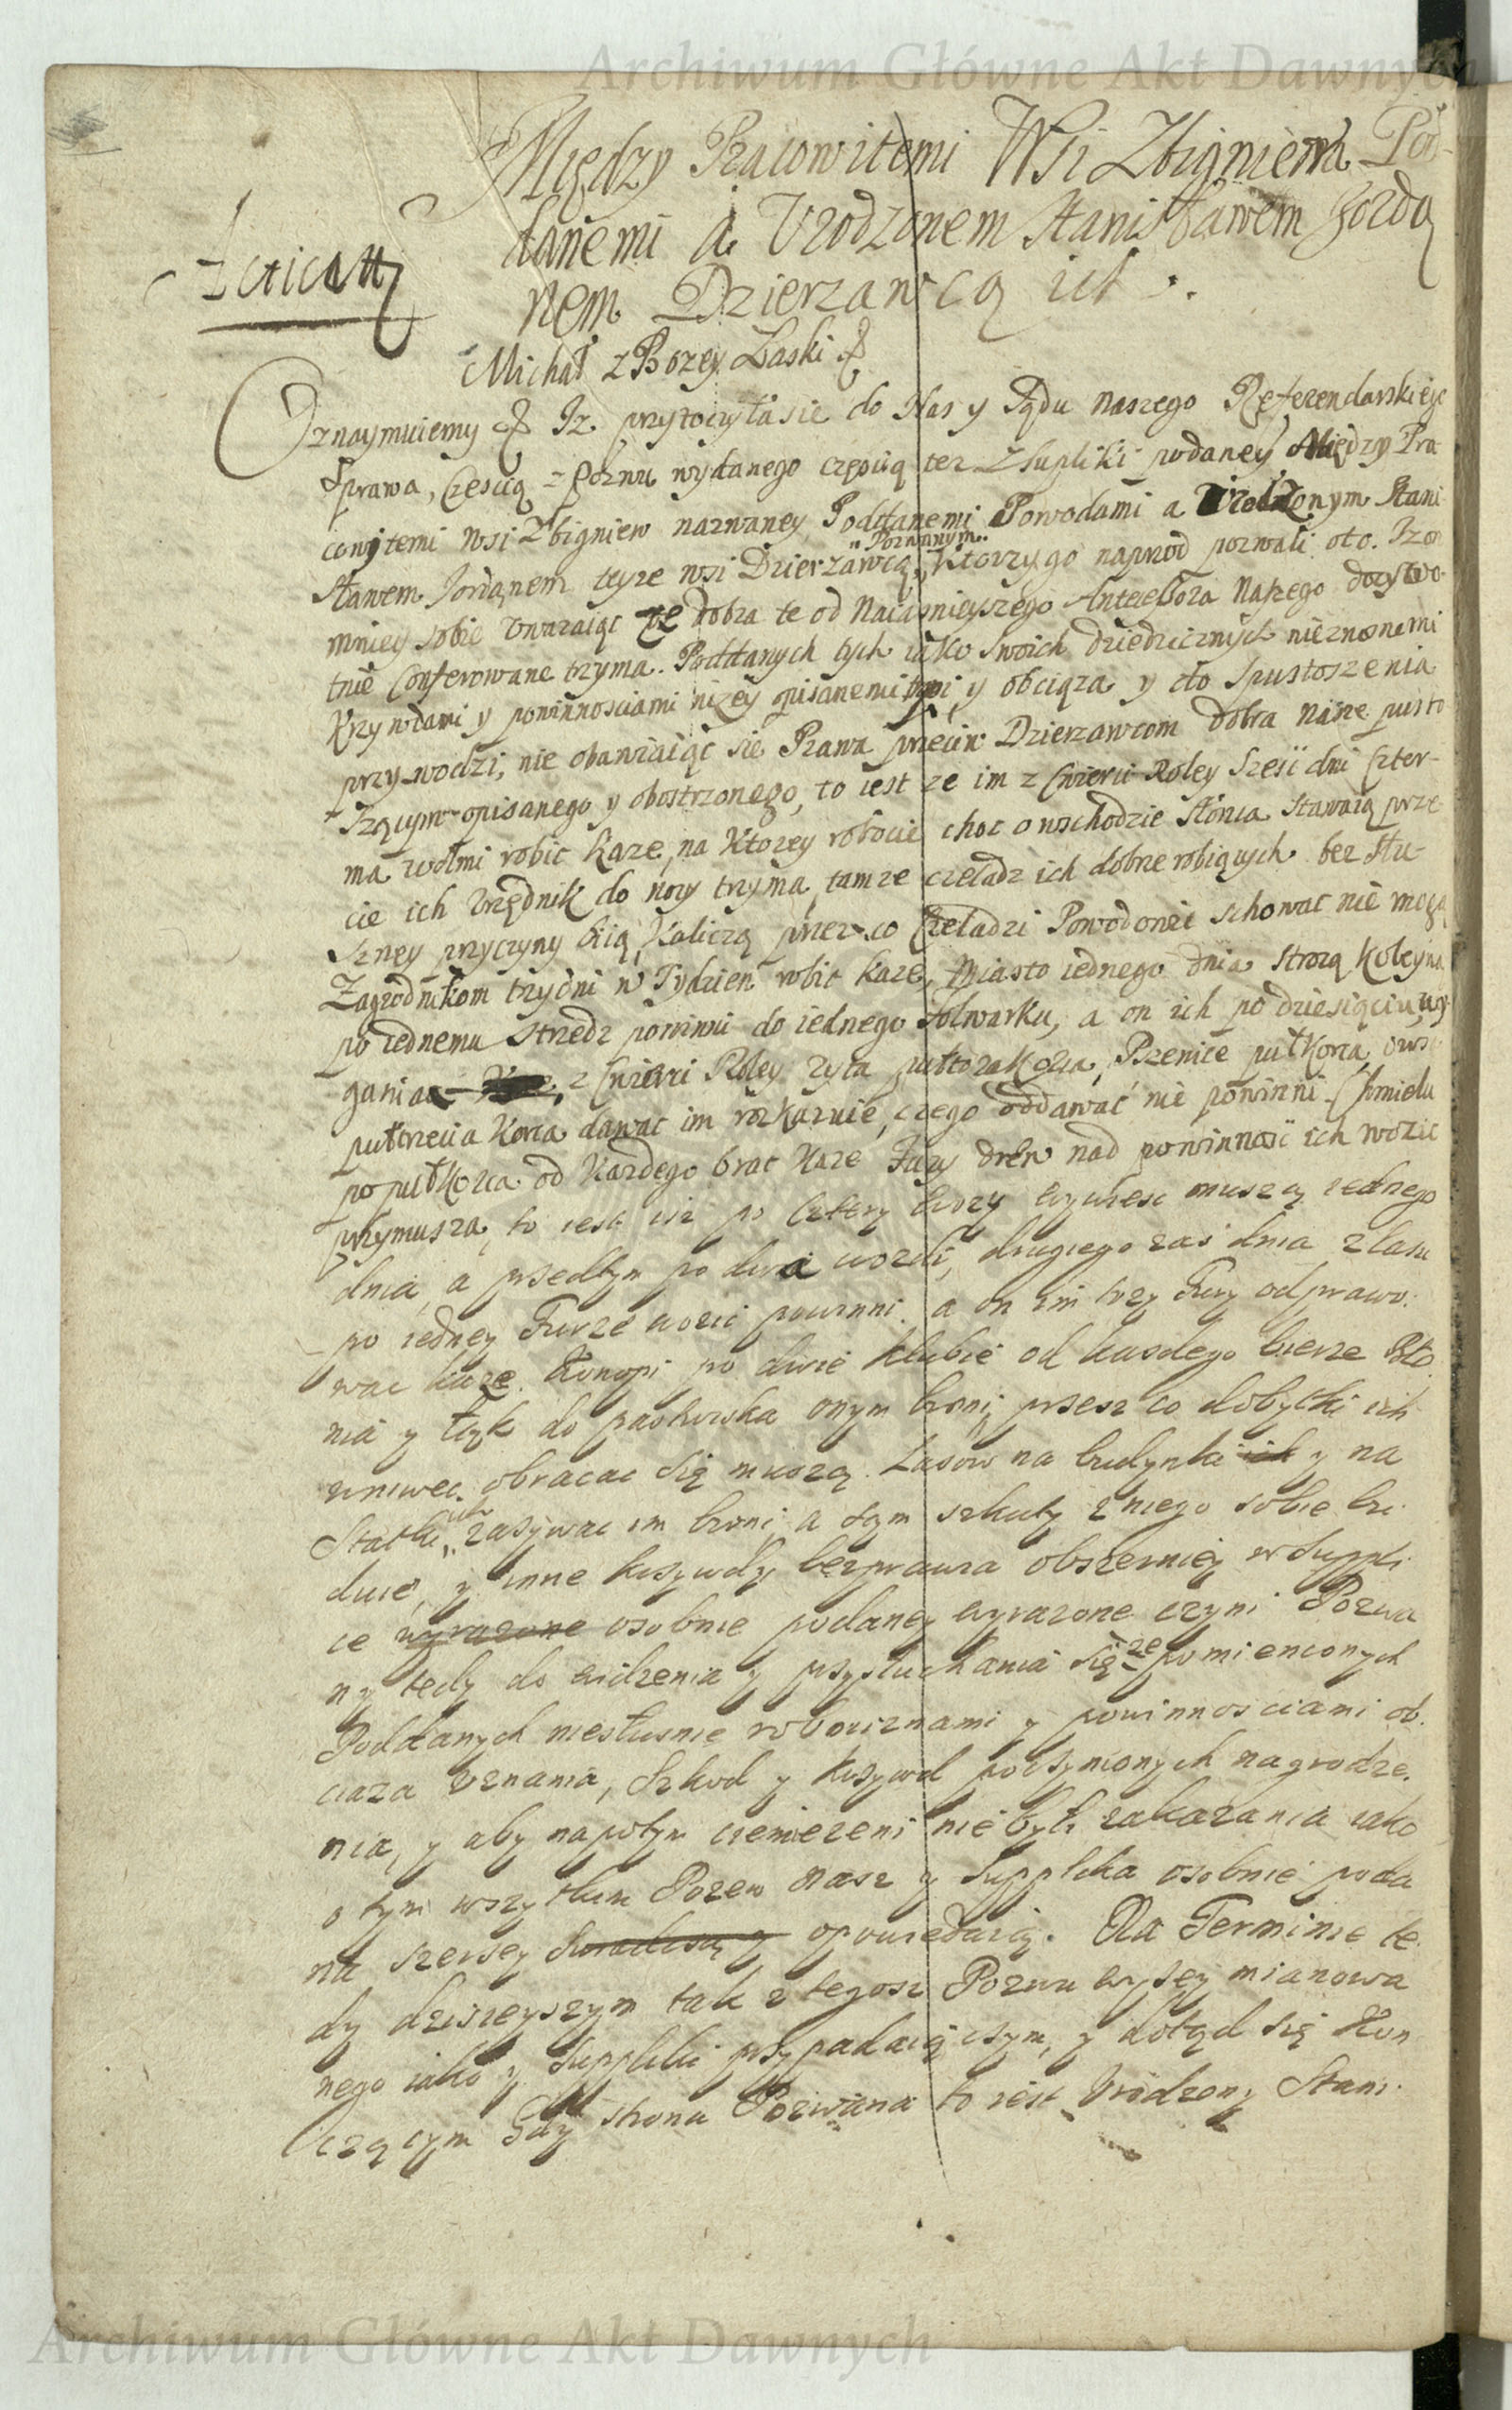 Archiwum Główne Akt Dawnych
Między Pracowitemi Wsi Zbigniewa Pod-
danemi a Urodzonem Stanisławem Jorda
nem Dzierzawcą ich
Michał z Bozey Łaski &
Oznaymuiemy & Iz przytoczyła sie do Nas y Sądu naszego Referendarskiego
Sprawa, Częscią z Pozwu wydanego częscią tez z Supliki podaney Między Pra
cowitemi wsi Zbigniew nazwaney Poddanemi Powodami a Urodzonym Stani
sławem Jordanem teyze wsi Dzierzawcą, Pozwanym Ktorzy go naprzod pozwali oto. Iz on
mniey sobie uwazaiąc ze dobra te od Naiasnieyszego Antecessora Naszego dozywo-
tnie Conferowane trzyma. Poddanych tych iako swoich dziedzicznych nieznosnemi
Krzywdami y powinnosciami nizey opisanemi y obciąza y do spustoszenia
przywodzi, nie obawiaiąc sie Prawa przeciw Dzierzawcom dobra nasze pusto
szącym opisanego y obostrzonego, to iest ze im z Cwierci Roley Szesc dni Czter-
ma wołmi robic kaze, na Ktorey robocie choc o wschodzie słonca stawaią prze
cie ich Urzędnik do nocy trzyma, tamze czeladz ich dobrze robiących bez słu-
szney przyczyny biią, kaliczą przez co Czeladzi Powodowie schowac nie mogą
Zagrodnikom trzy dni w Tydzien robic kaze, miasto iednego dnia strozą koleyną
po iednemu strzedz powinni do iednego folwarku, a on ich po dziesiąciu wy
gania z Cwierci Roley zyta pułtora korca, Pszenice pułkorca, owsa
pułtrzecia korca dawac im rozkazuie, czego oddawać nie powinni Chmielu
po pułkorca od kazdego brac kaze Fury drew nad powinnosc ich wozic
przymusza, to iest isz po cztery wozy wywiesc muszą iednego
dnia, a przedtym po dwa wozili, drugiego zas dnia z lasu
po iedney Furze wozic powinni. a on im trzy Fury odprawo-
wac kaze. Konopi po dwie kłubie od kazdego bierze Bło
nia y łąk do pastwiska onym broni, przesz co dobytki ich
wniwec obracac się muszą. Lasow na budynki ich y na
Statki ich zazywac im broni, a sam szkuty z niego sobie bu
duie, y inne krzywdy bezprawia obszerniey w suppli
ce wyrazone osobnie podaney wyrazone czyni Pozwa
ny tedy do widzenia y przysłuchania się ze pomienionych
Poddanych niesłusnie robociznami y powinnosciami ob
ciaza uznania, Szkod y krzywd poczynionych nagrodze-
nia, y aby napotym ciemiezeni nie byli zakazania iako
o tym wszytkim Pozew nasz y Supplika osobnie poda
na szerzey swiadczą y opowiedaią. Na Terminie te
dy dzisieyszym tak z tegosz Pozwu wyzey mianowa
nego iako y Suppliki przypadaiącym, y dotąd się kon
czącym Gdy strona Pozwana to iest Urodzony Stani
Archiwum Główne Akt Dawnych